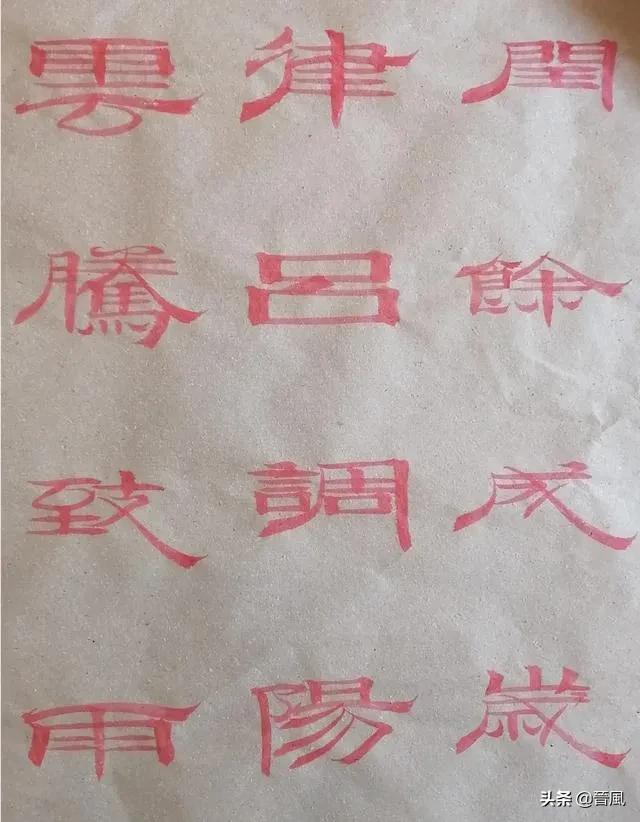 閏餘成歲
律呂調陽
雲騰致雨
头条 @音風